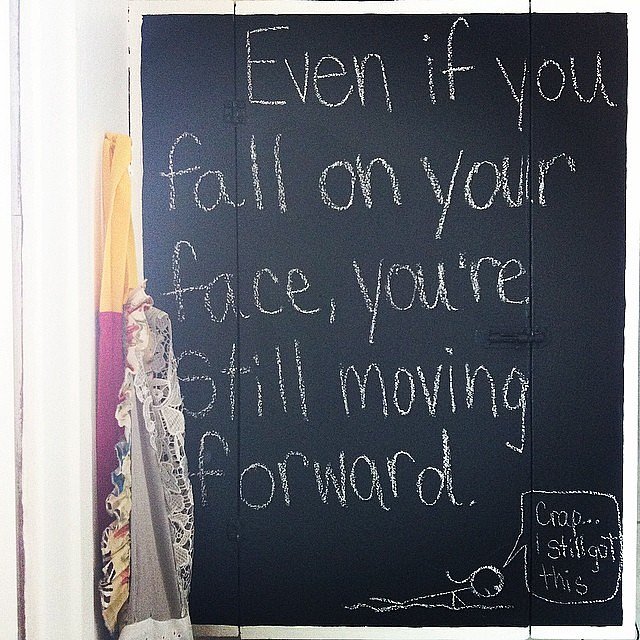 Even if you
fall on your
face, you're
still moving
forward.
Crap...
I still got
this